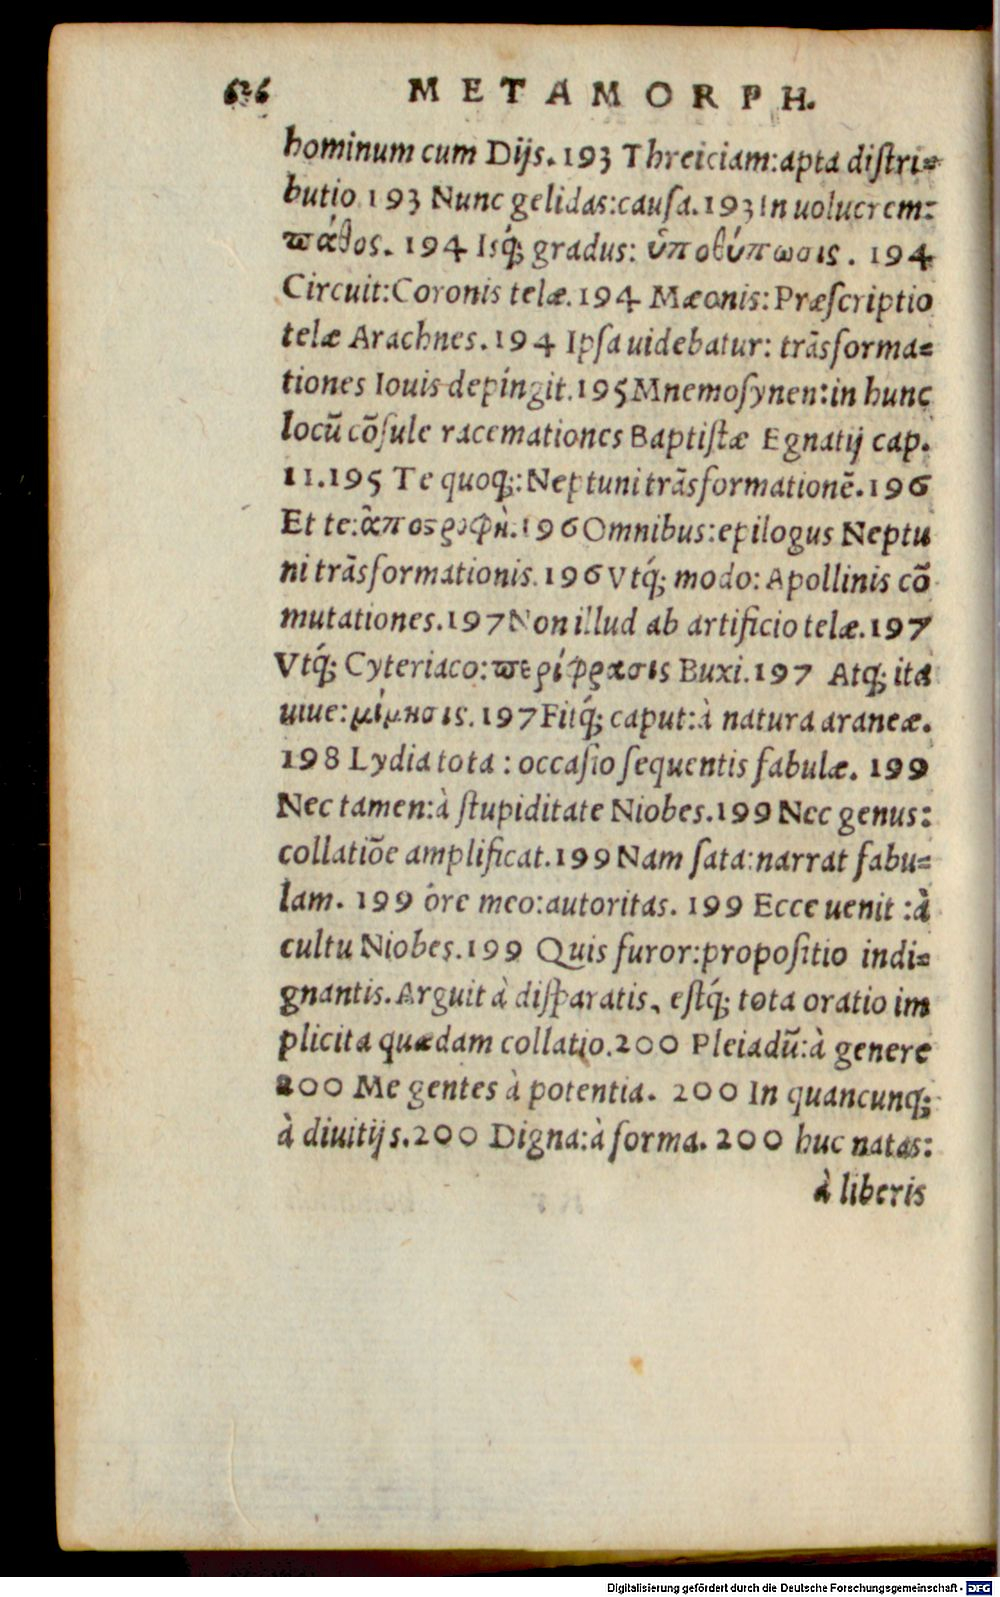 636 METAMORPH.
hominum cum Dijs. 193 Threiciam: apta distri=
butio 193 Nunc gelidas: causa. 193 In uolucrem:
πάθος. 194 Isq́; gradus: ὑποτύπωσις. 194
Circuit: Coronis telæ. 194 Mæonis: Præscriptio
telæ Arachnes. 194 Ipsa uidebatur: trãsforma=
tiones Iouis depingit. 195 Mnemosynen: in hunc
locũ cõsule racemationes Baptistæ Egnatij cap.
11. 195 Te quoq;: Neptuni trãsformationẽ. 196
Et te: ἀποστροφὴ. 196 Omnibus: epilogus Neptu
ni trãsformationis. 196 Vtq́; modo: Apollinis cõ
mutationes. 197 Non illud ab artificio telæ. 197
Vtq́; Cyteriaco: περίφρασις Buxi. 197 Atq; ita
uiue: μίμησις. 197 Fitq́; caput: à natura araneæ.
198 Lydia tota: occasio sequentis fabulæ. 199
Nec tamen: à stupiditate Niobes. 199 Nec genus:
collatiõe amplificat. 199 Nam sata: narrat fabu=
lam. 199 óre meo: autoritas. 199 Ecce uenit: à
cultu Niobes. 199 Quis furor: propositio indi=
gnantis. Arguit à disparatis, estq́; tota oratio im
plicita quædam collatio. 200 Pleiadũ: à genere
200 Me gentes à potentia. 200 In quancunq;:
à diuitijs. 200 Digna: à forma. 200 huc natas:
à liberis
Digitalisierung gefördert durch die Deutsche Forschungsgemeinschaft - DFG